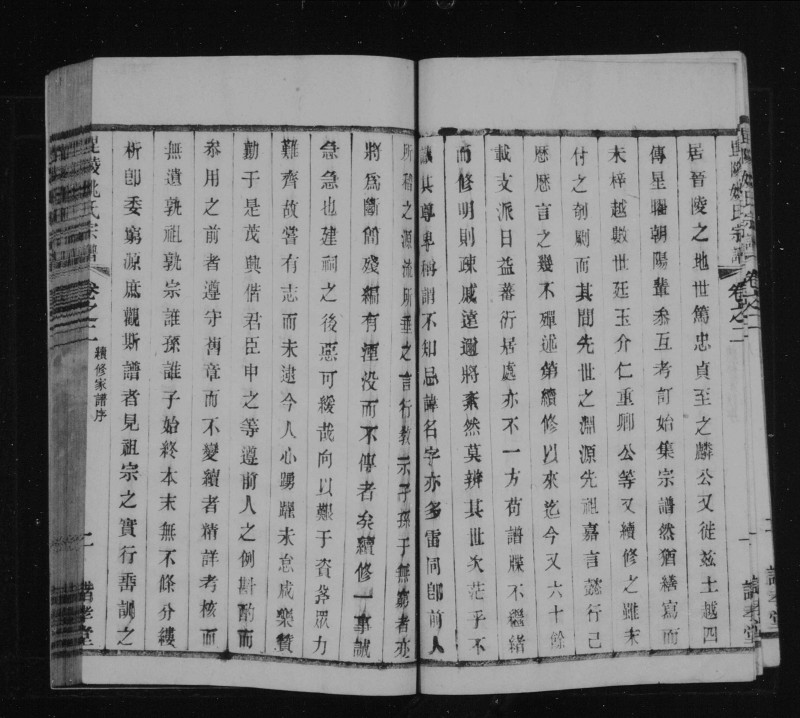 居晉陵之地世篤忠貞至之麟公又徙玆土越四
傳星聯朝陽輩叅互考訂始集宗譜然猶繕寫而
未梓越數世廷玉介仁重卿公等又續修之雖未
付之剞劂而其間先世之淵源先祖嘉言懿行已
歷歷言之幾不殫述第續修以來迄今又六十餘
載支派日益蕃衍居處亦不一方苟譜牒不繼緒
而修明則疎戚遠邇將紊然莫辨其世次茫乎不
其尊卑稱謂不知忌諱名字亦多雷同卽前人
所稽之源流所垂之言行教示子孫于無窮者亦
將爲斷簡殘編有湮没而不傳者矣續修一事誠
急急也建祠之後惡可緩哉向以艱于資斧眾力
難齊故嘗有志而未逮今人心踴躍未怠咸樂贊
勷于是茂興偕君臣申之等遵前人之例斟酌而
叅用之前者遵守舊章而不變續者精詳考核而
無遺孰祖孰宗誰孫誰子始終本末無不條分縷
析卽委窮源庶觀斯譜者見祖宗之實行善訓之
毘陵姚氏宗譜
卷之二
續修家譜序
二
諧孝堂